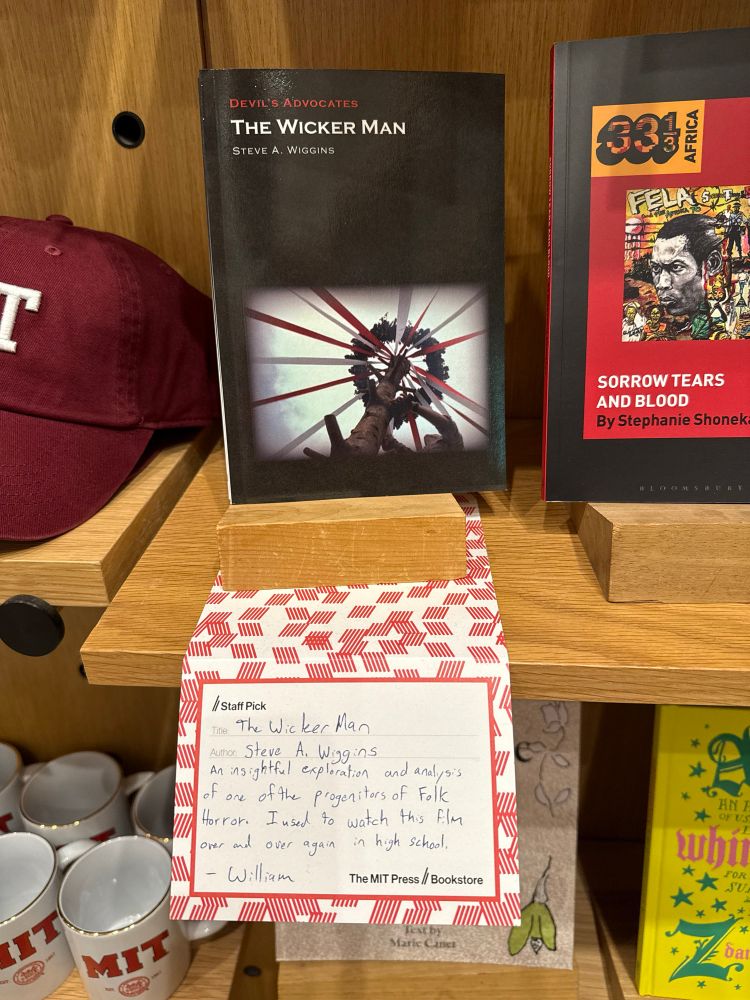 DEVIL'S ADVOCATES
THE WICKER MAN
STEVE A. WIGGINS
33 1/3
AFRICA
FELA
SORROW TEARS
AND BLOOD
By Stephanie Shoneka
BLOOMSBURY
T
//Staff Pick
Title: The Wicker Man
Author: Steve A. Wiggins
An insightful exploration and analysis
of one of the progenitors of Folk
Horror. I used to watch this film
over and over again in high school.
- William
The MIT Press // Bookstore
Text by
Marie Canet
MIT
MIT
whin
FOR
Z
dan